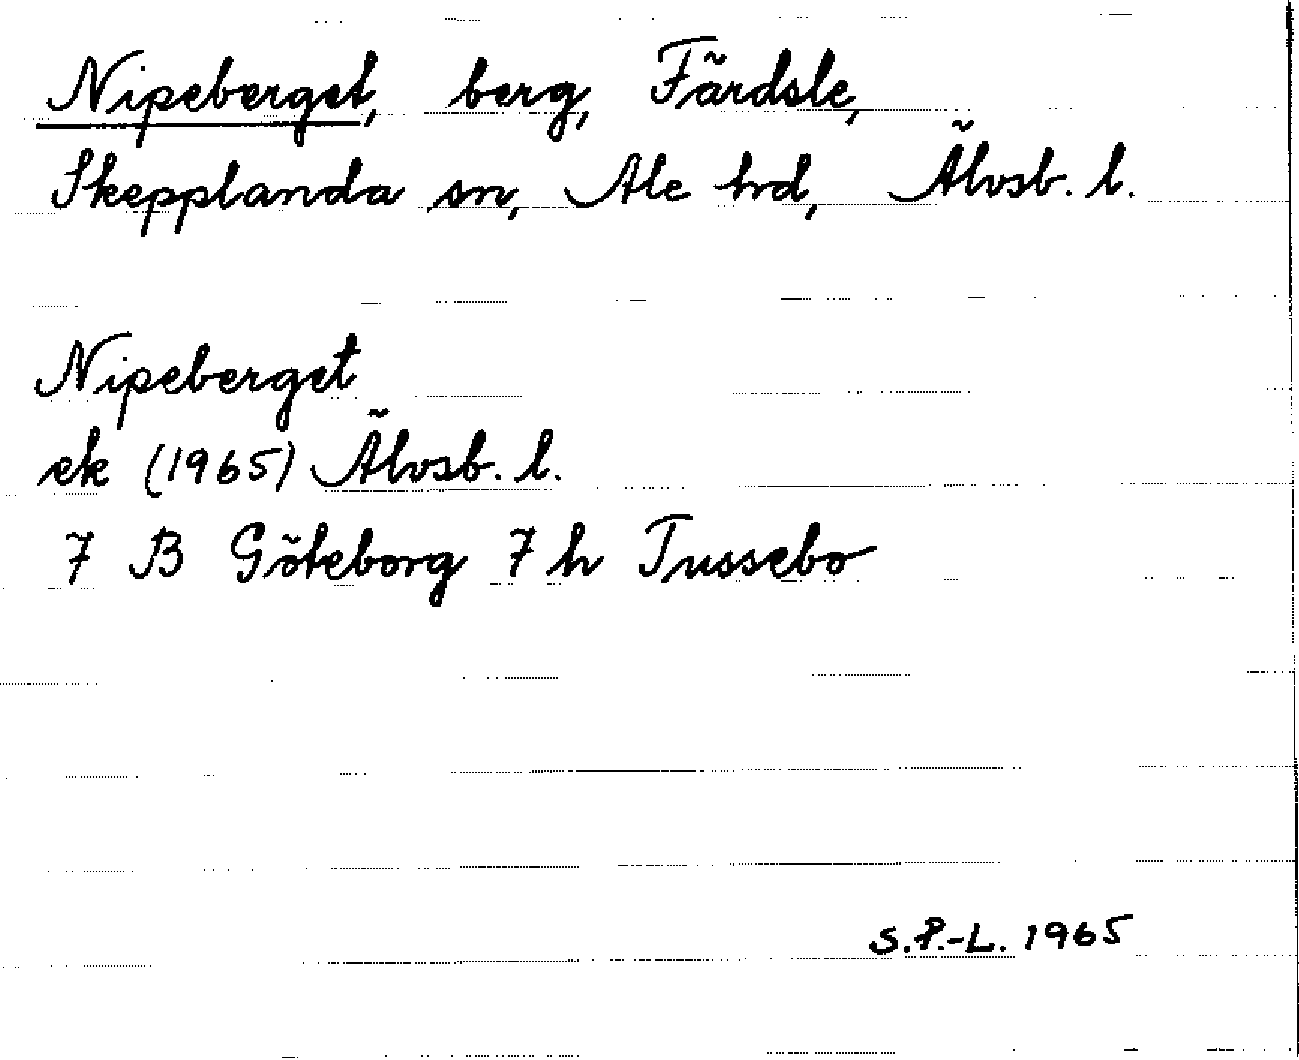 Nipeberget, berg, Färdsle,
Skepplanda sn, Ale hrd, Älvsb. l.
Nipeberget
ek (1965) Älvsb. l.
7 B Göteborg 7 h Tussebo
S.P.-L. 1965